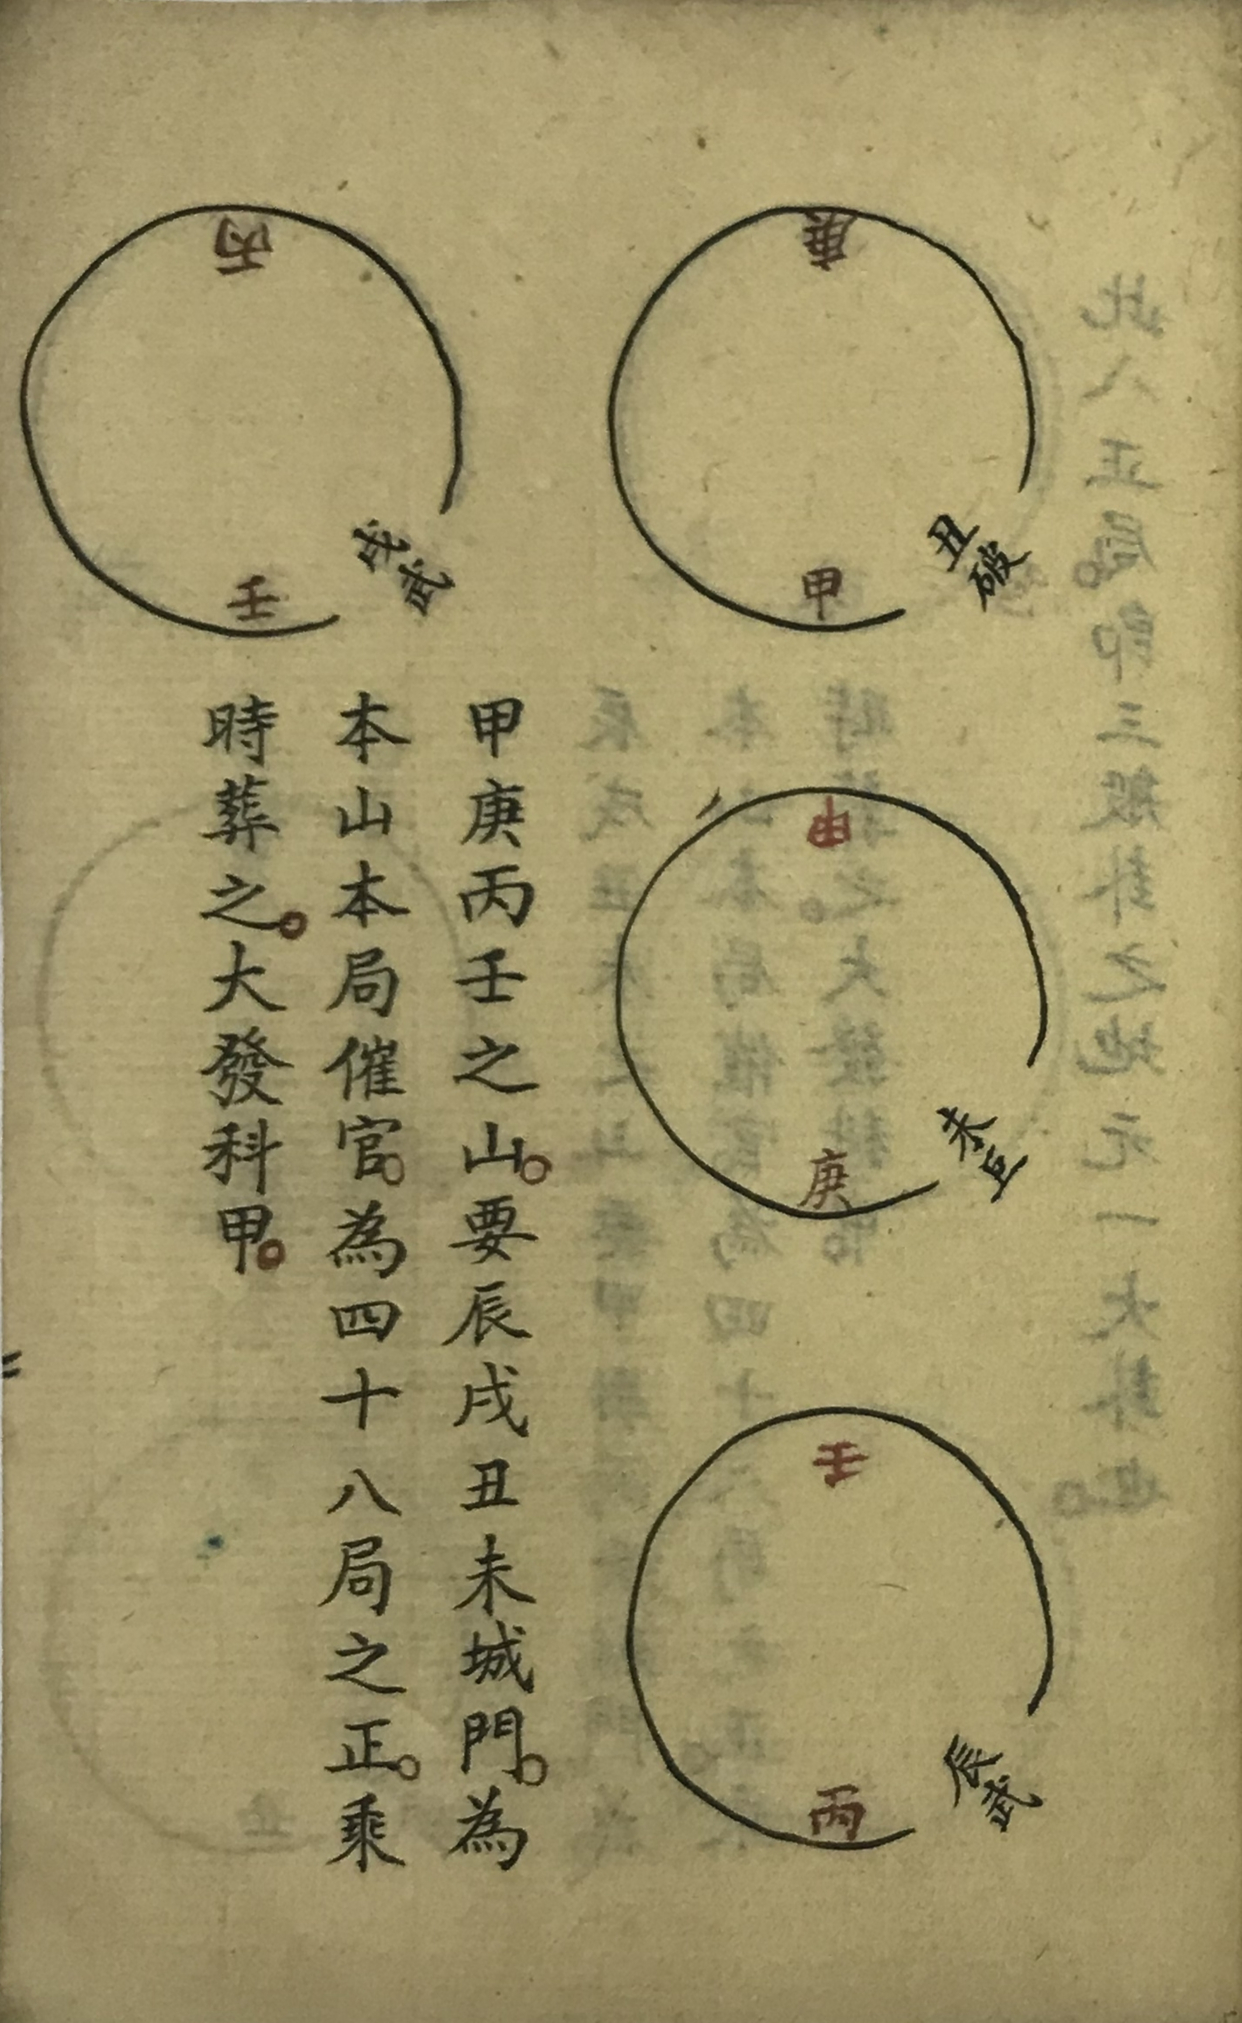 庚
甲
丑破
甲
庚
未巨
壬
丙
辰武
甲庚丙壬之山。要辰戌丑未城門。為
本山本局催官。為四十八局之正。乘
時葬之。大發科甲。
丙
壬
戌武